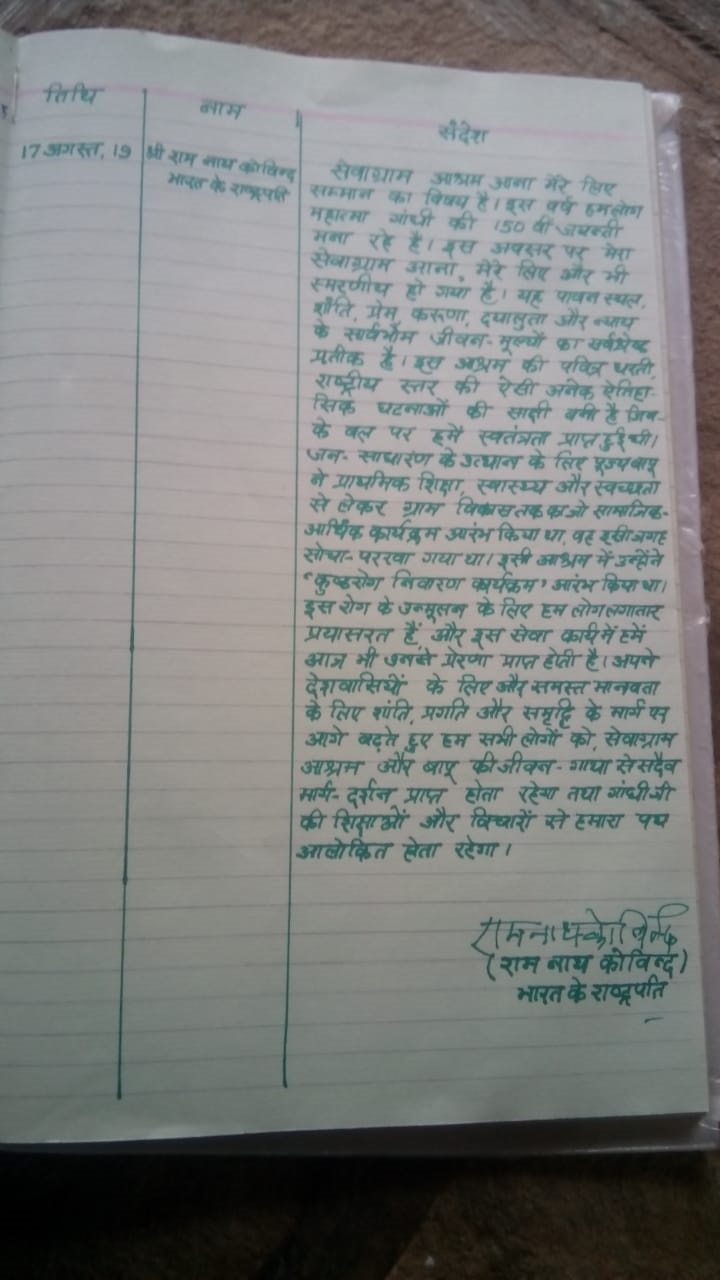 तिथि
नाम
संदेश
17 अगस्त, 19
श्री राम नाथ कोविन्द
भारत के राष्ट्रपति
सेवाग्राम आश्रम आना मेरे लिए
सम्मान का विषय है। इस वर्ष हम लोग
महात्मा गांधी की 150 वीं जयन्ती
मना रहे हैं। इस अवसर पर मेरा
सेवाग्राम आना, मेरे लिए और भी
स्मरणीय हो गया है। यह पावन स्थल,
शांति, प्रेम, करूणा, दयालुता और न्याय
के सार्वभौम जीवन-मूल्यों का सर्वश्रेष्ठ
प्रतीक है। इस आश्रम की पवित्र धरती,
राष्ट्रीय स्तर की ऐसी अनेक ऐतिहा-
सिक घटनाओं की साक्षी बनी है जिन-
के बल पर हमें स्वतंत्रता प्राप्त हुई थी।
जन-साधारण के उत्थान के लिए पूज्य बापू
ने प्राथमिक शिक्षा, स्वास्थ्य और स्वच्छता
से लेकर ग्राम विकास तक का जो सामाजिक-
आर्थिक कार्यक्रम आरंभ किया था, वह इसी जगह
सोचा-परखा गया था। इसी आश्रम में उन्होंने
"कुष्ठरोग निवारण कार्यक्रम" आरंभ किया था।
इस रोग के उन्मूलन के लिए हम लोग लगातार
प्रयासरत हैं, और इस सेवा कार्य में हमें
आज भी उनसे प्रेरणा प्राप्त होती है। अपने
देशवासियों के लिए और समस्त मानवता
के लिए शांति, प्रगति और समृद्धि के मार्ग पर
आगे बढ़ते हुए हम सभी लोगों को, सेवाग्राम
आश्रम और बापू की जीवन-गाथा से सदैव
मार्ग-दर्शन प्राप्त होता रहेगा तथा गांधीजी
की शिक्षाओं और विचारों से हमारा पथ
आलोकित होता रहेगा।
रामनाथ कोविन्द
(राम नाथ कोविन्द)
भारत के राष्ट्रपति